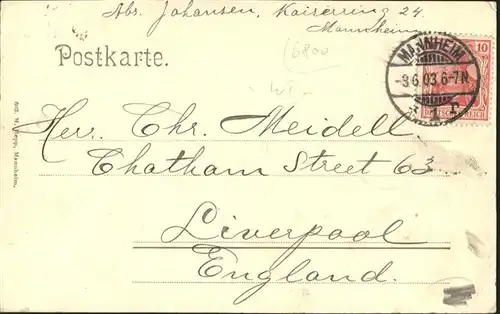 Abs. Johansen, Kaiserring 24.
Mannheim
(6800
Postkarte.
10
MANNHEIM
-3.6.03.6-7N.
DEUTSCHES REICH
Herr. Chr. Meidell.
Chatham Street 63.
Liverpool
England.